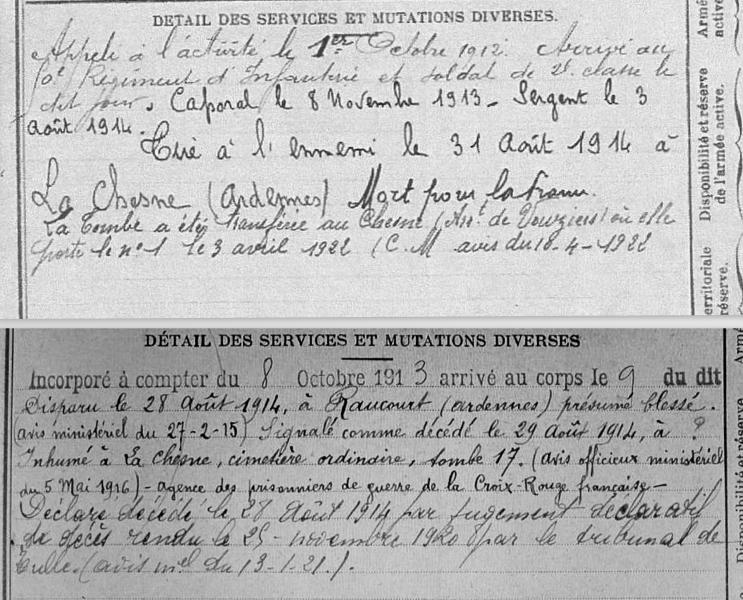 DÉTAIL DES SERVICES ET MUTATIONS DIVERSES.
Appelé à l'activité le 1er Octobre 1912. Arrivé au
Régiment d'Infanterie et soldat de 2e classe le
dit jour. Caporal le 8 Novembre 1913 - Sergent le 3
Août 1914.
Tué à l'ennemi le 31 Août 1914 à
La Chesne (Ardennes) Mort pour la France.
La Tombe a été transférée au Chesne (Art de Vouziers) où elle
porte le n° 1 le 3 avril 1922 (C.M avis du 18-4-1922
Armé
active
Disponibilité et réserve
de l'armée active.
erritoriale
réserve.
DÉTAIL DES SERVICES ET MUTATIONS DIVERSES
Incorporé à compter du 8 Octobre 1913 arrivé au corps le 9 du dit
Disparu le 28 Août 1914, à Raucourt (Ardennes) présumé blessé.
(avis ministériel du 27-2-15) Signalé comme décédé le 29 Août 1914, à ?
Inhumé à La Chesne, cimetière ordinaire, tombe 17. (avis officieux ministériel
du 5 Mai 1916) - agence des prisonniers de guerre de la Croix-Rouge française -
Déclaré décédé le 28 Août 1914 par jugement déclaratif
de décès rendu le 25 novembre 1920 par le tribunal de
Tulle. (avis mel du 13-1-21.)
Armé
Disponibilité et réserve